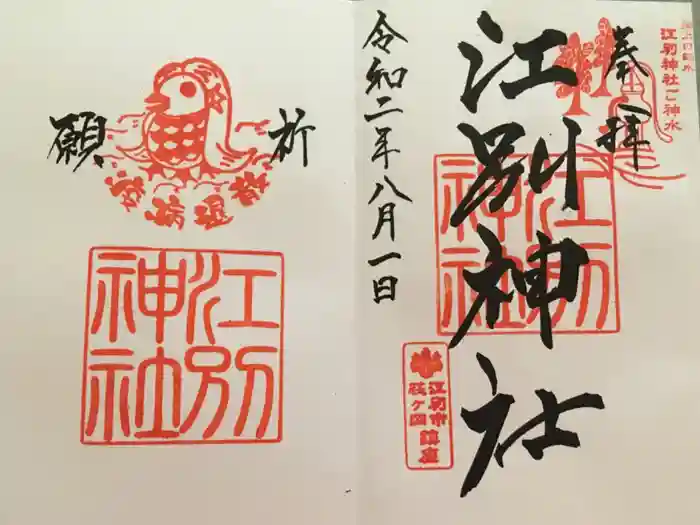 奉拝
江別神社
江別神社
江別神社ご神水
江別市
萩ヶ岡
鎮座
令和二年八月一日
祈願
疫病退散
江別神社